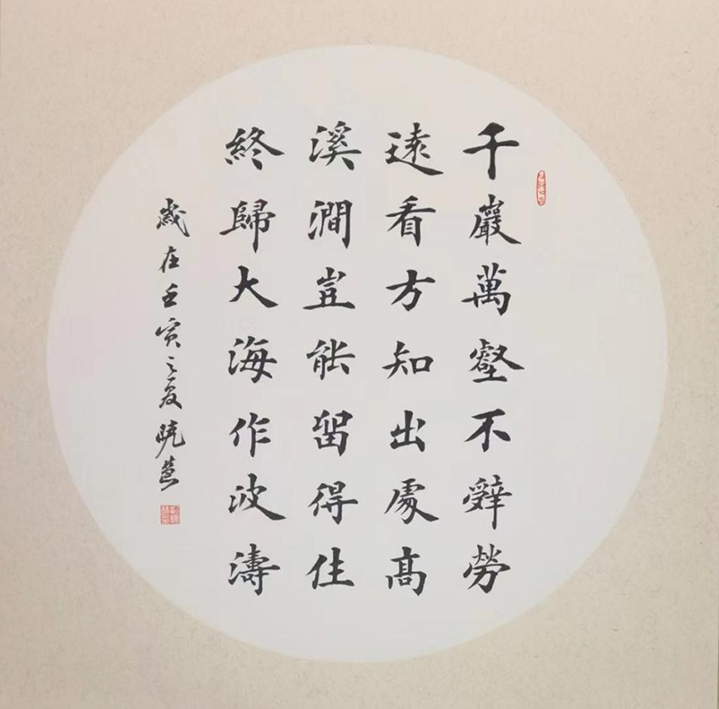 千巖萬壑不辭勞
遠看方知出處高
溪澗豈能留得住
終歸大海作波濤
歲在壬寅之夏曉慧